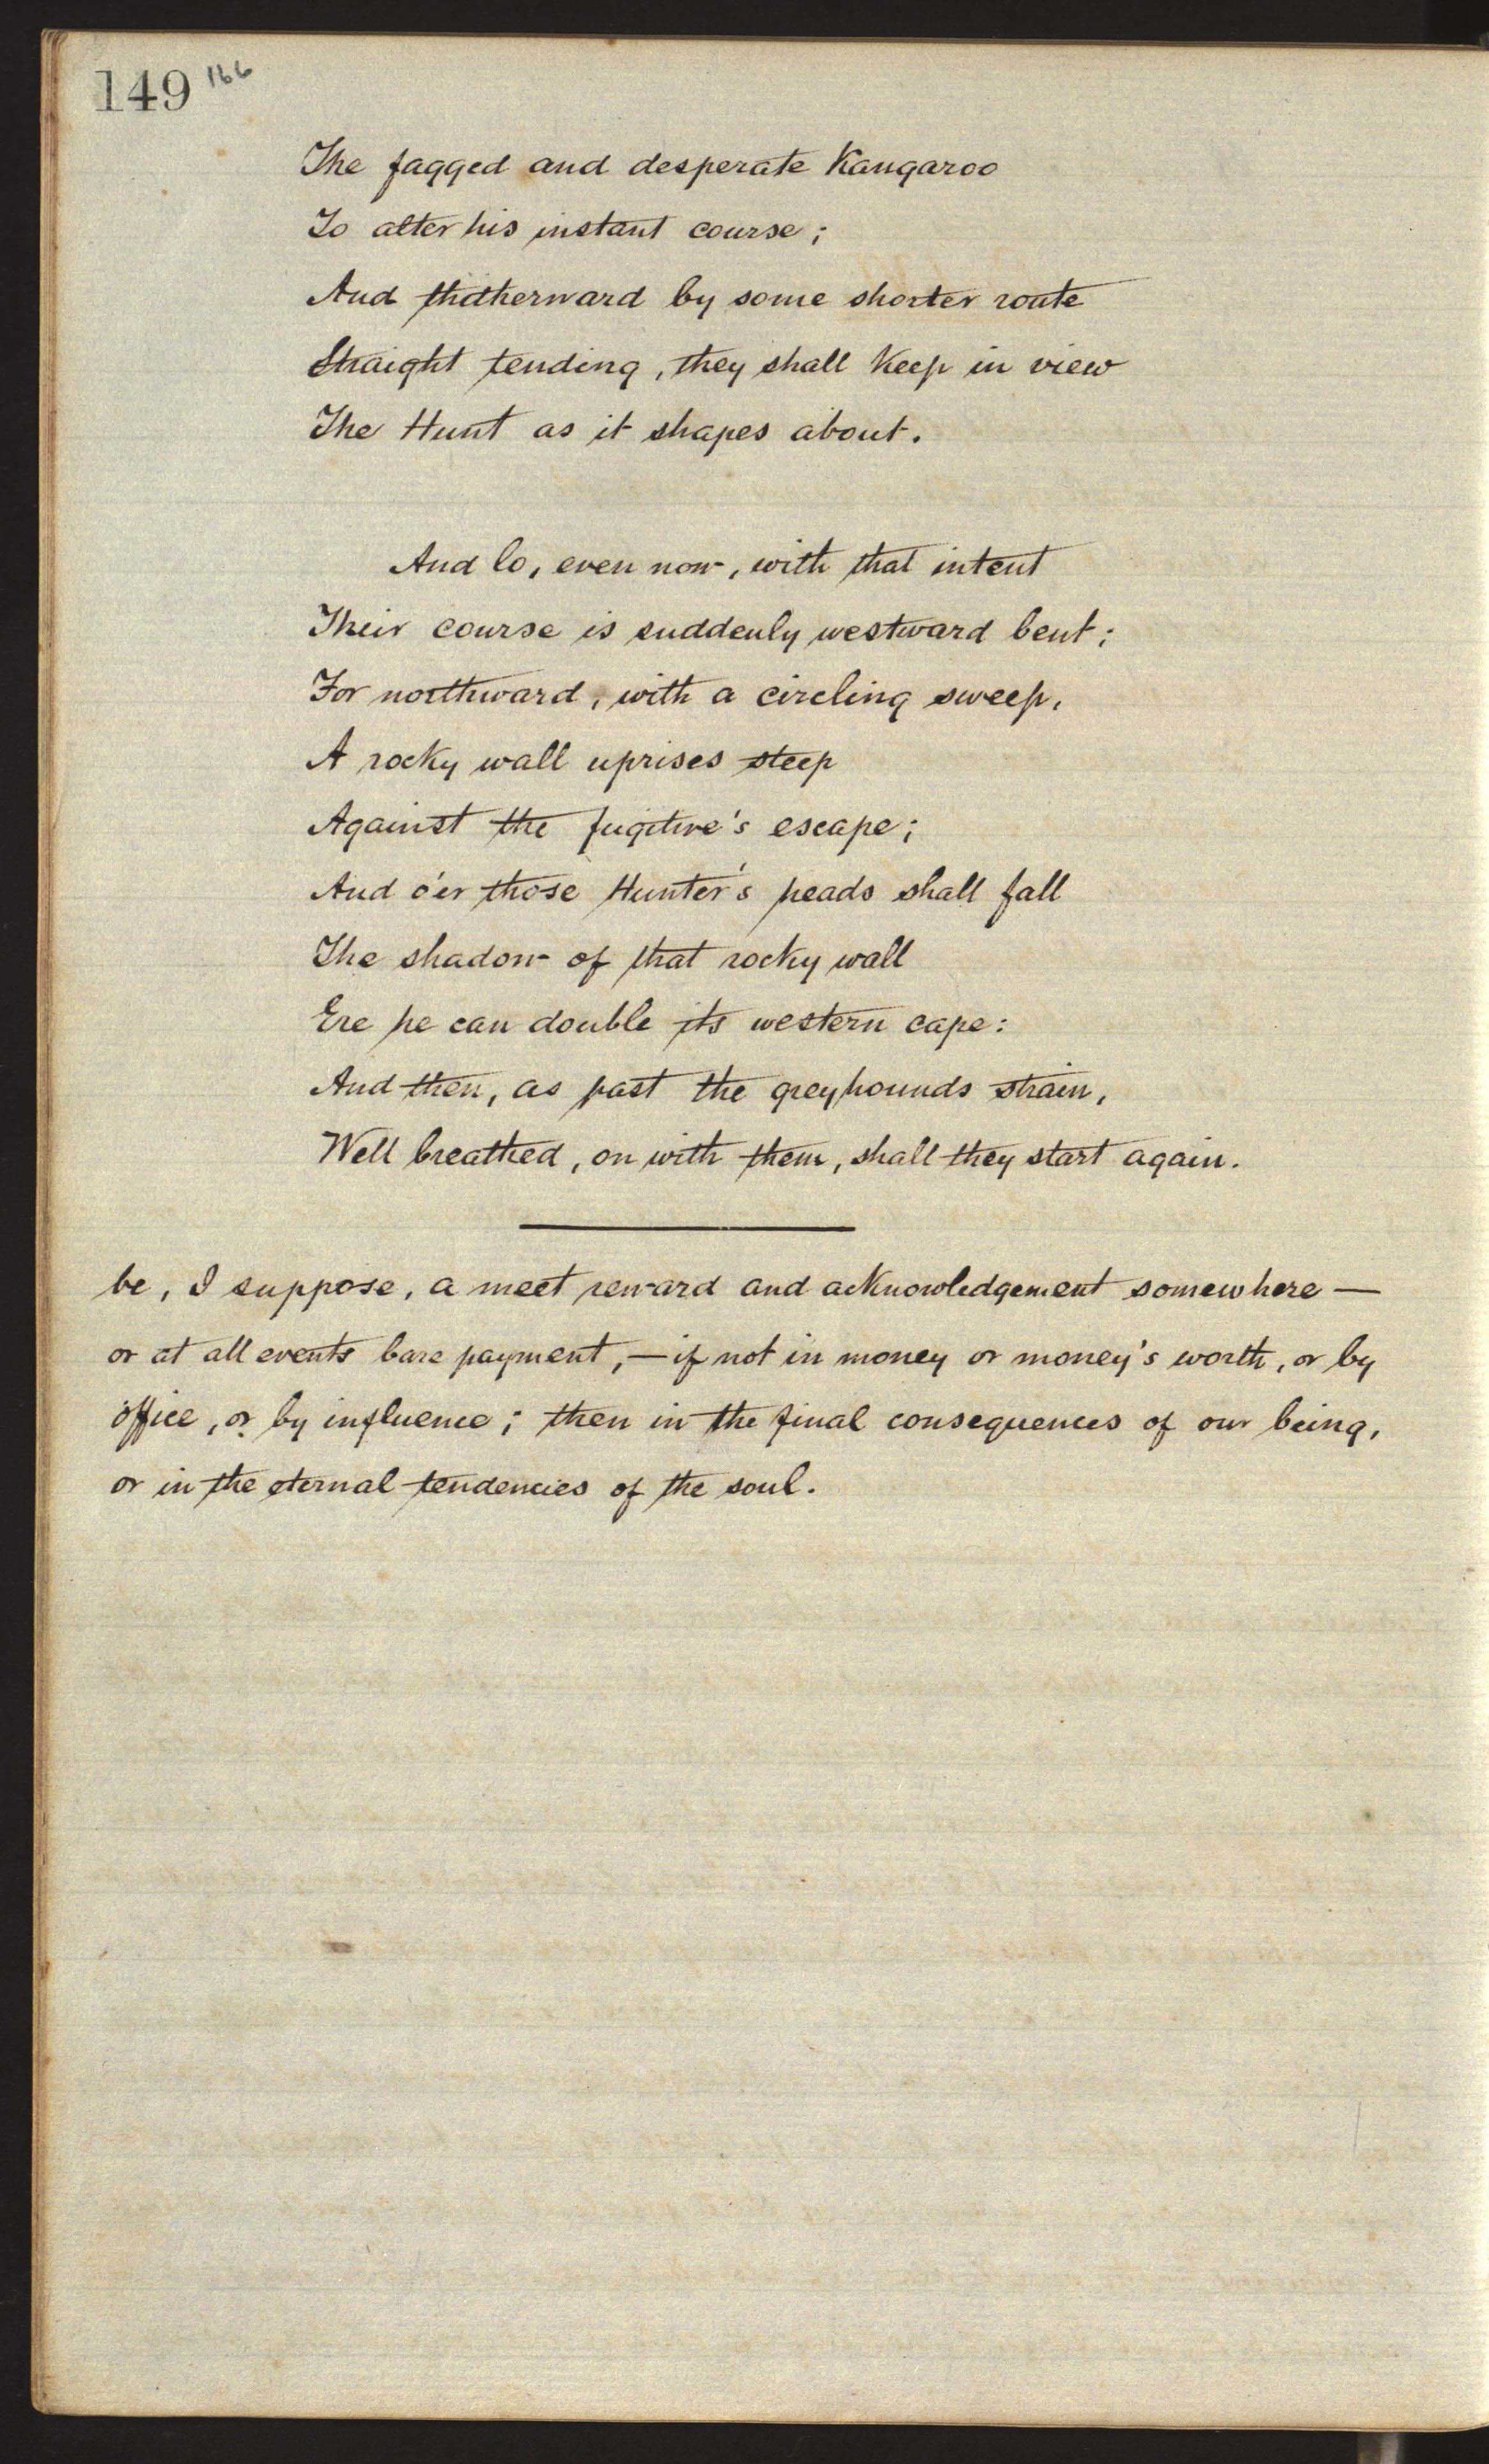 149 166
The fagged and desperate Kangaroo
To alter his instant course;
And thitherward by some shorter route
Straight tending, they shall Keep in view
The Hunt as it shapes about.
And lo, even now, with that intent
Their course is suddenly westward bent;
For northward, with a circling sweep,
A rocky wall uprises steep
Against the fugitive's escape;
And o'er those Hunter's heads shall fall
The shadow of that rocky wall
Ere he can double its western cape:
And then, as past the greyhounds strain,
Well breathed, on with them, shall they start again.
be, I suppose, a meet reward and acknowledgement somewhere —
or at all events bare payment, — if not in money or money's worth, or by
office, or by influence; then in the final consequences of our being,
or in the eternal tendencies of the soul.